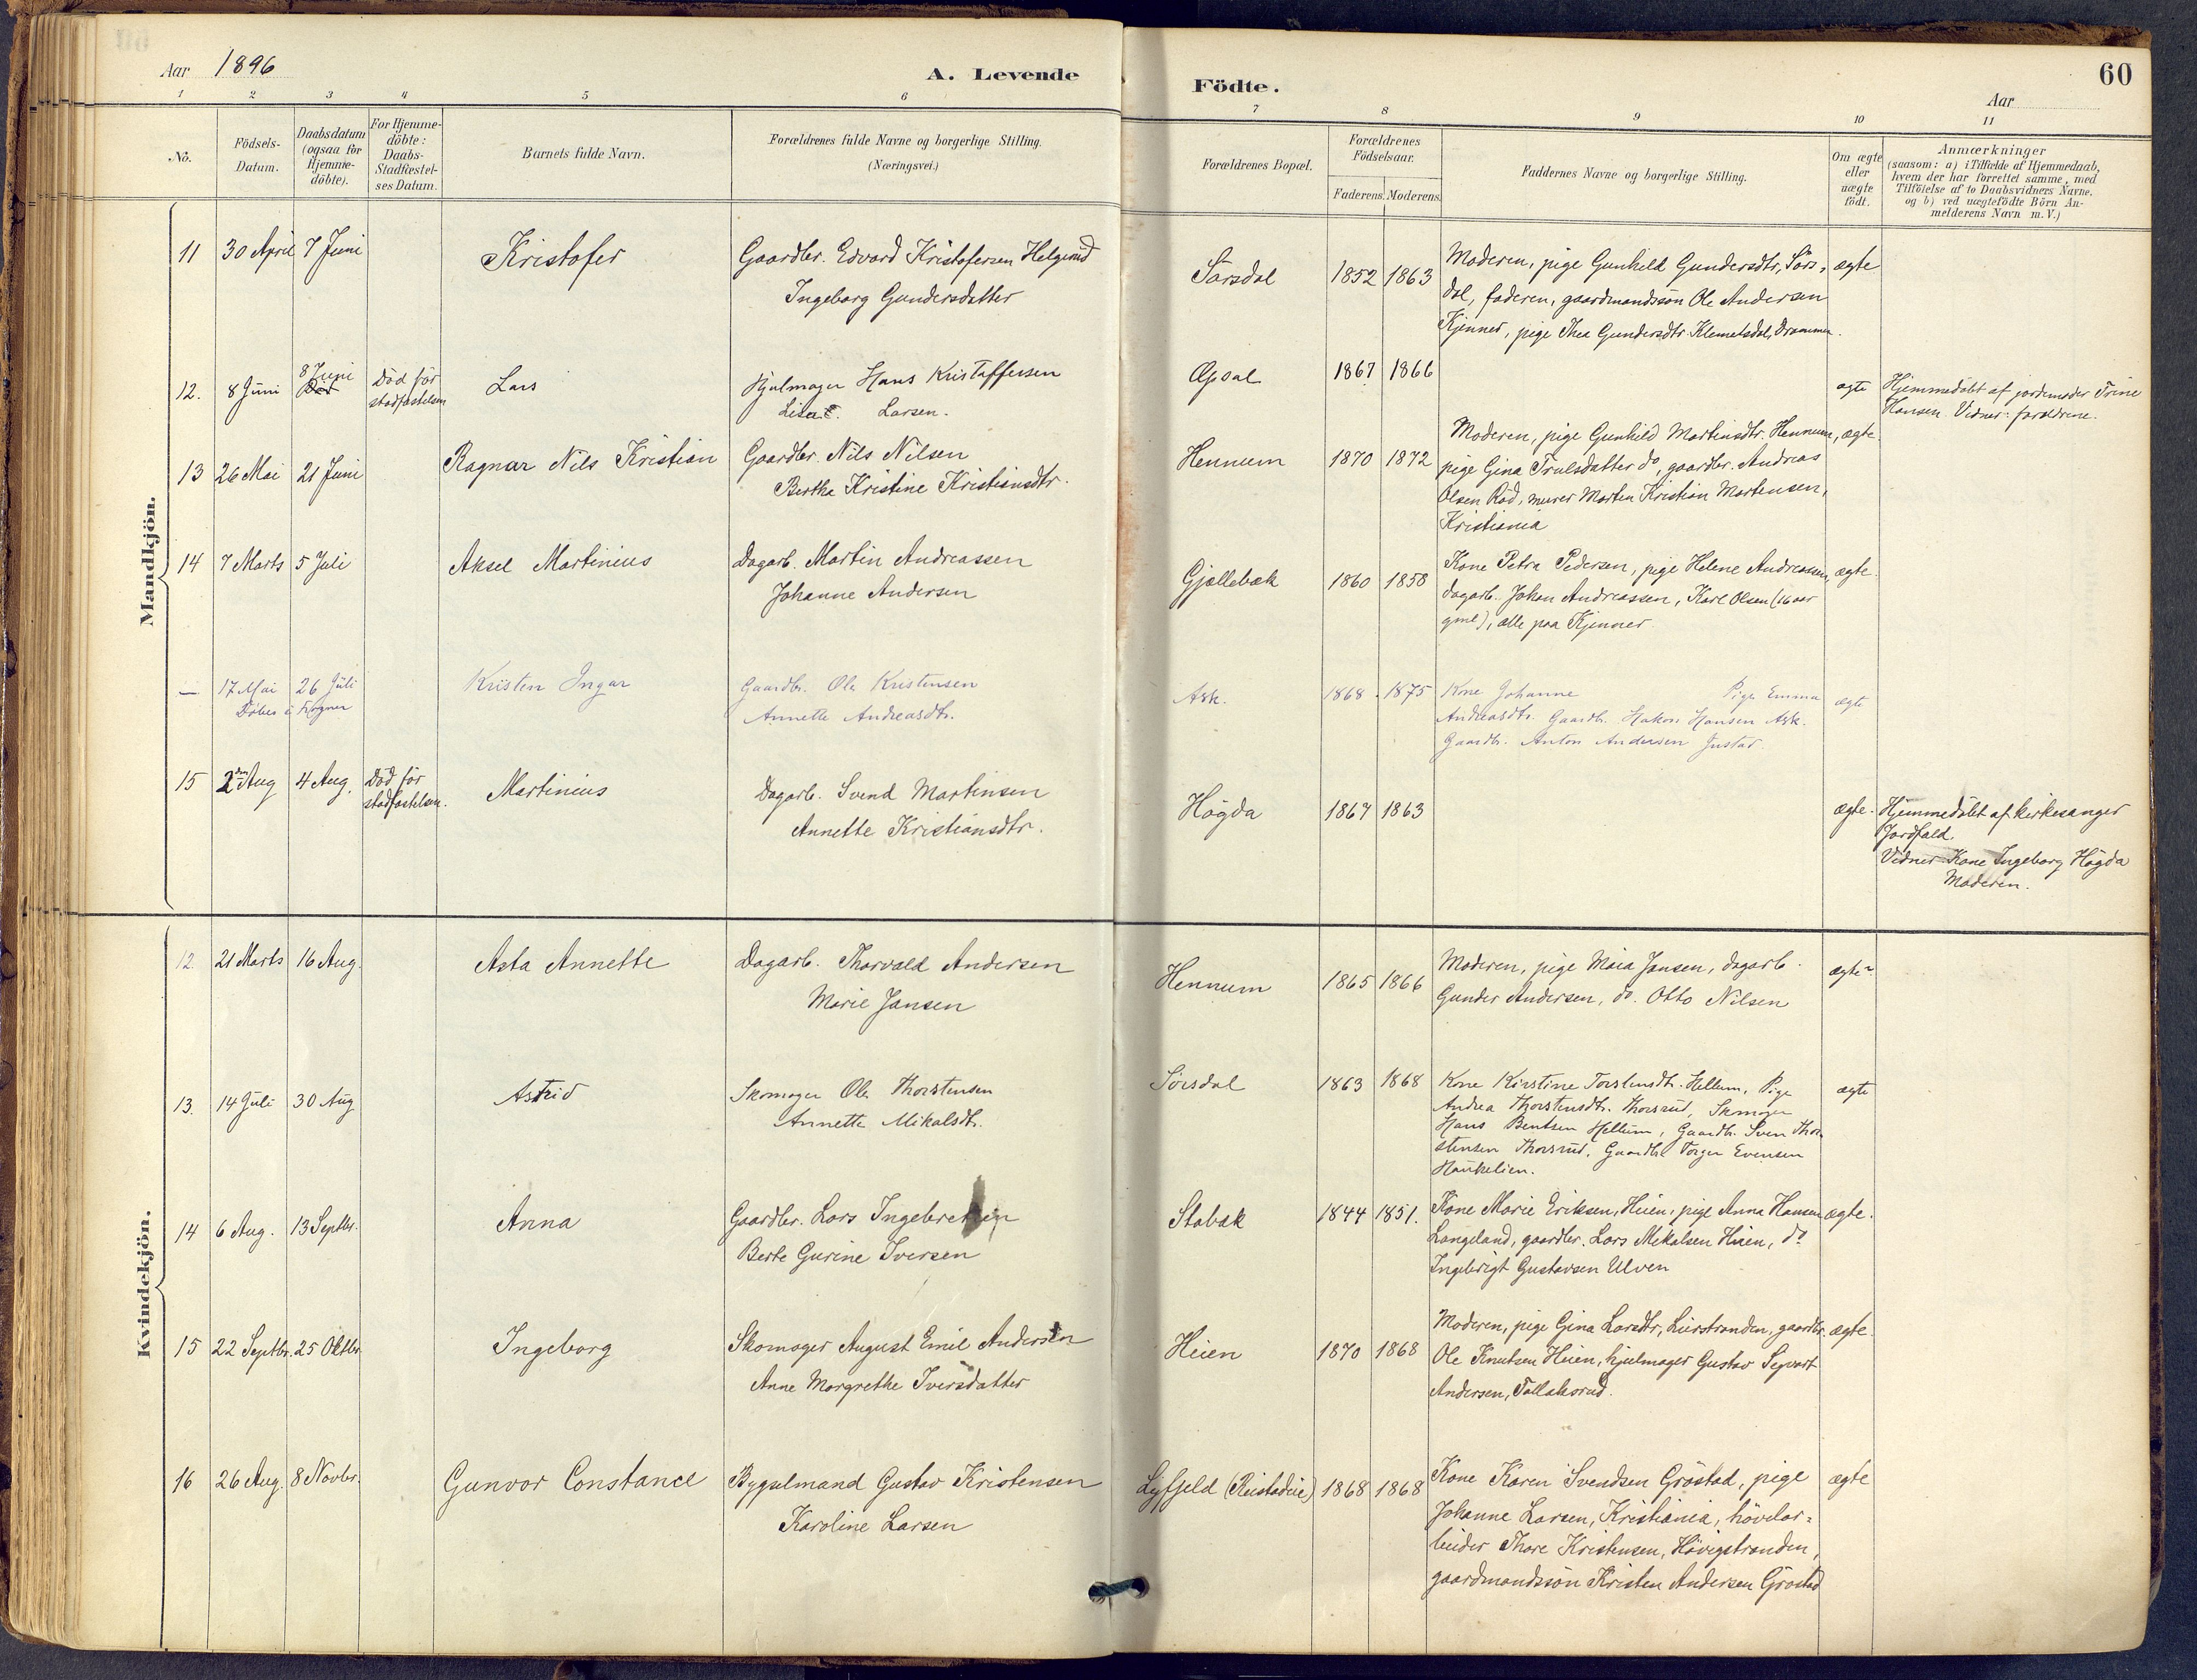 60
Aar 1896
A. Levende Födte.
Aar
1 2 3 4 5 6 7 8 9 10 11
No.
Födsels-Datum.
Daabsdatum (ogsaa for Hjemme-döbte).
For Hjemme-döbte: Daabs-Stadfæstel-ses Datum.
Barnets fulde Navn.
Forældrenes fulde Navne og borgerlige Stilling.
(Næringsvei.)
Forældrenes Bopæl.
Forældrenes Födselsaar.
Faderens. Moderens.
Faddernes Navne og borgerlige Stilling.
Om ægte eller uægte födt.
Anmærkninger
(saasom: a) i Tilfælde af Hjemmedaab,
hvem der har forrettet samme, med
Tilföielse af to Daabsvidners Navne.
og b) ved uægtefödte Börn An-
melderens Navn m. V.)
Mandkjön.
11 30 April 7 Juni Kristofer Gaardbr. Edvard Kristofersen Helgerud
Ingeborg Gundersdatter
Sørsdal 1852 1863 Moderen, pige Gunhild Gundersdtr, Sørs-
dal, faderen, gaardmandssön Ole Andersen
Kjenner, pige Thea Gundersdtr Klemetsdal, Drammen.
ægte
12. 8 Juni 8 Juni Död för stadfæstelsen Lars Hjulmager Hans Kristoffersen
Lisa Larsen.
Opsal 1867 1866 ægte Hjemmedöbt af jordemoder Trine
Hansen. Vidner: forældrene.
13 26 Mai 21 Juni Ragnar Nils Kristian Gaardbr. Nils Nilsen
Bertha Kristine Kristiansdtr.
Hennum 1870 1872 Moderen, pige Gunhild Martinsdtr. Hennum, ægte.
pige Gina Trulsdatter do, gaardbr. Andreas
Olsen Röd, murer Morten Kristian Mortensen,
Kristiania
14 7 Marts 5 Juli Aksel Martinius Dagarb. Martin Andreassen
Johanne Andersen
Gjellebæk 1860 1858 Kone Petra Pedersen, pige Helene Andreassen, ægte.
dagarb. Johan Andreassen, Karl Olsen (16 aar
gml), alle paa Kjenner
— 17 Mai 26 Juli Kristen Ingar Gaardbr. Ole Kristensen
Döbes i Frogner
Annette Andreasdtr.
Ask. 1868 1875 Kone Johanne Pige Emma
Andreasdtr. Gaardbr. Hakon Hansen Ask.
Gaardbr. Anton Andersen Justad.
ægte
15 2den Aug 4 Aug. Död för stadfæstelsen. Martinius Dagarb. Svend Martinsen
Annette Kristiansdtr.
Högda 1867 1863 ægte. Hjemmedöbt af kirkesanger
Jordfald.
Vidner: Kone Ingeborg Högda
Moderen.
Kvindekjön.
12. 21 Marts 16 Aug. Asta Annette Dagarb. Thorvald Andersen
Marie Jansen
Hennum 1865 1866 Moderen, pige Maia Jansen, dagarb.
Gunder Andersen, do. Otto Nilsen
ægte
13. 14 Juli 30 Aug Astrid Skomager Ole Thorstensen
Annette Mikalsdtr.
Sörsdal 1863 1868 Kone Kirstine Torstensdtr. Hellum, Pige
Andrea Thorstensdtr. Thorsrud, Skmager
Hans Bentsen Hellum, Gaardbr. Sven Thor-
stensen Thorsrud, Gaardbr. Torger Evensen
Haukelien.
ægte
14 6 Aug. 13 Septbr. Anna Gaardbr. Lars Ingebretsen
Berte Gurine Iversen
Stabæk 1844 1851. Kone Marie Eriksen, Heien, pige Anna Hansen ægte.
Langeland, gaardbr. Lars Mikalsen Heien, do
Ingebrigt Gustavsen Ulven
15 22 Septbr. 25 Oktbr. Ingeborg Skomager August Emil Andersen
Anne Margrethe Iversdatter
Heien 1870 1868 Moderen, pige Gina Larsdtr, Lierstranden, gaardbr. ægte.
Ole Knutsen Heien, hjulmager Gustav Segvart
Andersen, Tollaksrud.
16 26 Aug. 8 Novbr. Gunvor Constance Bygselmand Gustav Kristensen
Karoline Larsen
Lyfjeld (Reistadeie) 1868 1868 Kone Karen Svendsen Gröstad, pige
Johanne Larsen, Kristiania, hövelar-
beider Thore Kristensen, Hövigstranden,
gaardmandssön Kristen Andersen Gröstad
ægte